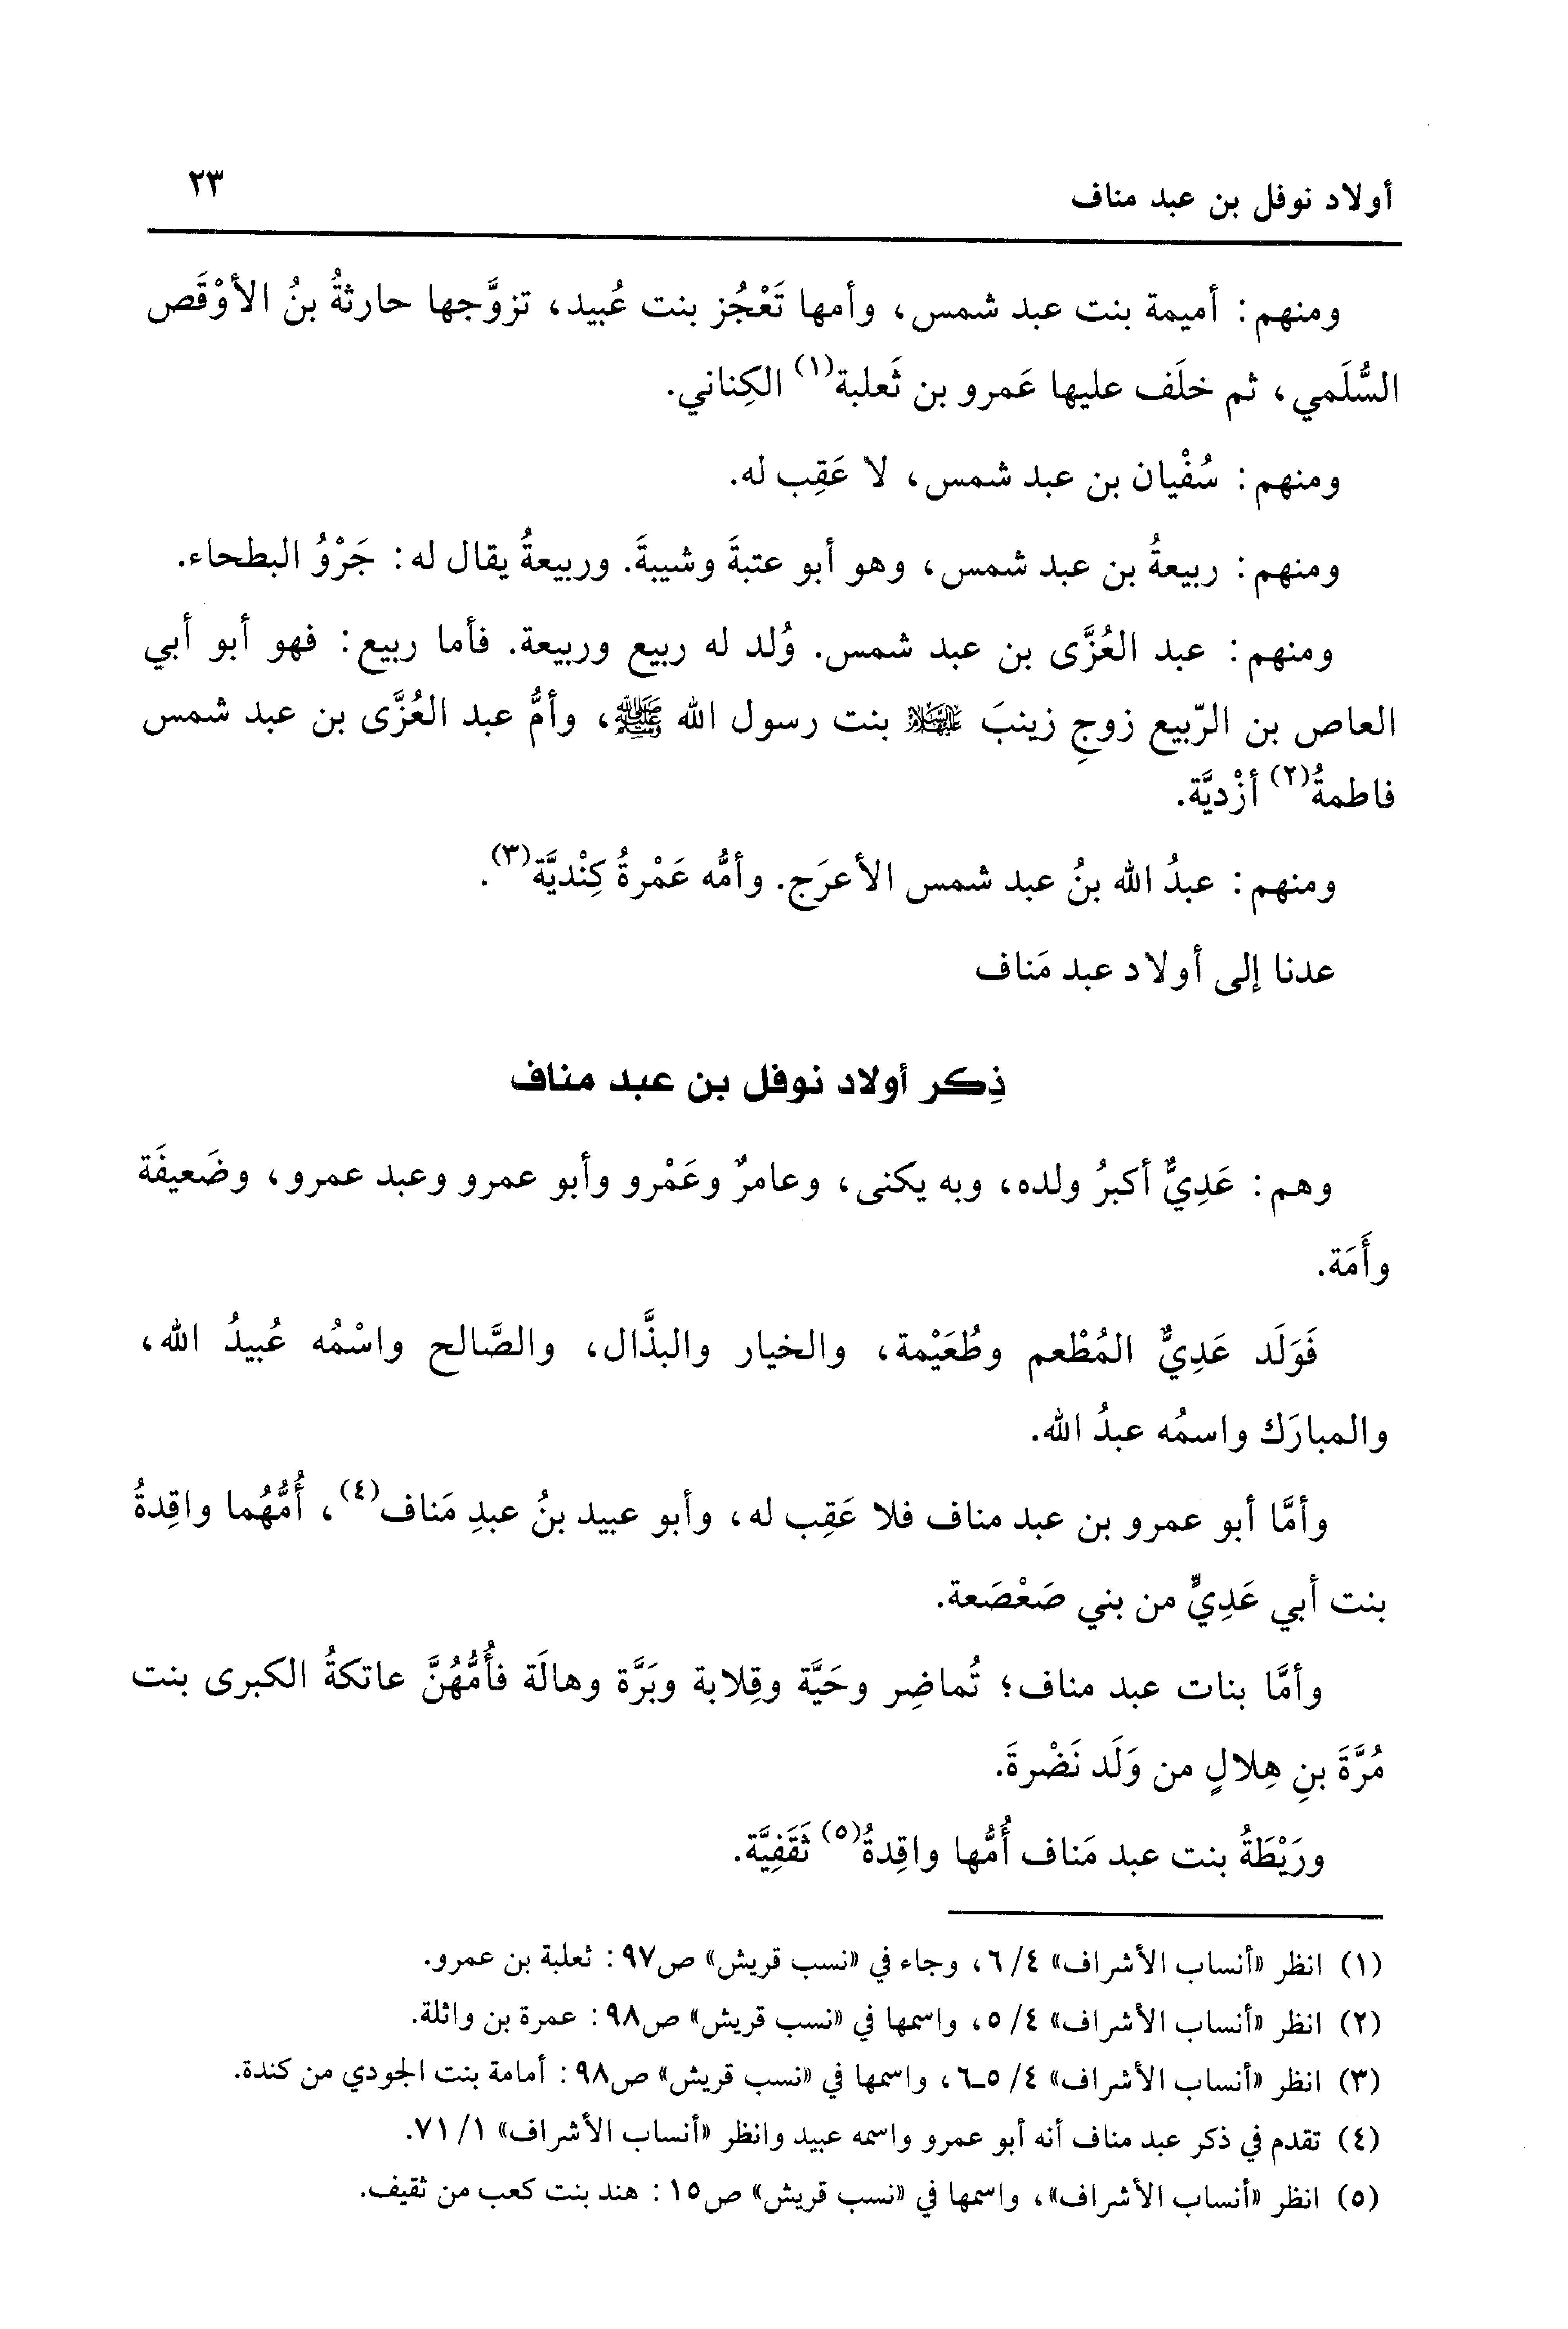 أولاد نوفل بن عبد مناف ٢٣
ومنهم: أميمة بنت عبد شمس، وأمها تَعْجُز بنت عُبيد، تزوَّجها حارثةُ بنُ الأوْقَص
السُّلَمي، ثم خلَف عليها عَمرو بن ثَعلبة(١) الكِناني.
ومنهم: سُفْيان بن عبد شمس، لا عَقِب له.
ومنهم: ربيعةُ بن عبد شمس، وهو أبو عتبةَ وشيبةَ. وربيعةُ يقال له: جَرْوُ البطحاء.
ومنهم: عبد العُزَّى بن عبد شمس. وُلد له ربيع وربيعة. فأما ربيع: فهو أبو أبي
العاص بن الرّبيع زوجِ زينبَ عليها السلام بنت رسول الله ﷺ، وأمُّ عبد العُزَّى بن عبد شمس
فاطمةُ(٢) أزْديَّة.
ومنهم: عبدُ الله بنُ عبد شمس الأعرَج. وأمُّه عَمْرةُ كِنْديَّة(٣).
عدنا إلى أولاد عبد مَناف
ذِكر أولاد نوفل بن عبد مناف
وهم: عَدِيٌّ أكبرُ ولده، وبه يكنى، وعامرٌ وعَمْرو وأبو عمرو وعبد عمرو، وضَعيفَة
وأَمَة.
فَوَلَد عَدِيٌّ المُطْعم وطُعَيْمة، والخيار والبذَّال، والصَّالح واسْمُه عُبيدُ الله،
والمبارَك واسمُه عبدُ الله.
وأمَّا أبو عمرو بن عبد مناف فلا عَقِب له، وأبو عبيد بنُ عبدِ مَناف(٤)، أُمُّهُما واقِدةُ
بنت أبي عَدِيٍّ من بني صَعْصَعة.
وأمَّا بنات عبد مناف؛ تُماضِر وحَيَّة وقِلابة وبَرَّة وهالَة فأُمُّهُنَّ عاتكةُ الكبرى بنت
مُرَّةَ بنِ هِلالٍ من وَلَد نَضْرةَ.
ورَيْطَةُ بنت عبد مَناف أُمُّها واقِدةُ(٥) ثَقَفِيَّة.
(١) انظر «أنساب الأشراف» ٤/ ٦، وجاء في «نسب قريش» ص٩٧: ثعلبة بن عمرو.
(٢) انظر «أنساب الأشراف» ٤/ ٥، واسمها في «نسب قريش» ص٩٨: عمرة بن واثلة.
(٣) انظر «أنساب الأشراف» ٤/ ٥ـ٦، واسمها في «نسب قريش» ص٩٨: أمامة بنت الجودي من كندة.
(٤) تقدم في ذكر عبد مناف أنه أبو عمرو واسمه عبيد وانظر «أنساب الأشراف» ١/ ٧١.
(٥) انظر «أنساب الأشراف»، واسمها في «نسب قريش» ص١٥: هند بنت كعب من ثقيف.